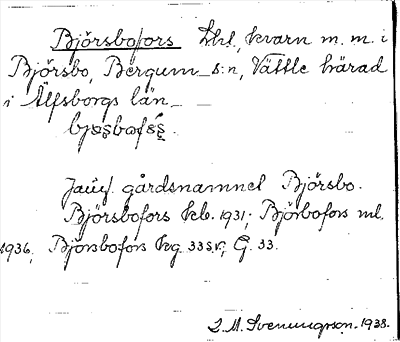 Björsbofors Lhl, kvarn m. m. i
Björsbo, Bergum s:n, Vättle härad
i Älfsborgs län
Jämf. gårdsnamnet Björsbo.
Björsbofors kb. 1931; Björbofors ml.
1936, Björsbofors kg. 33 S.V., G. 33.
S. M. Svenungsson. 1938.